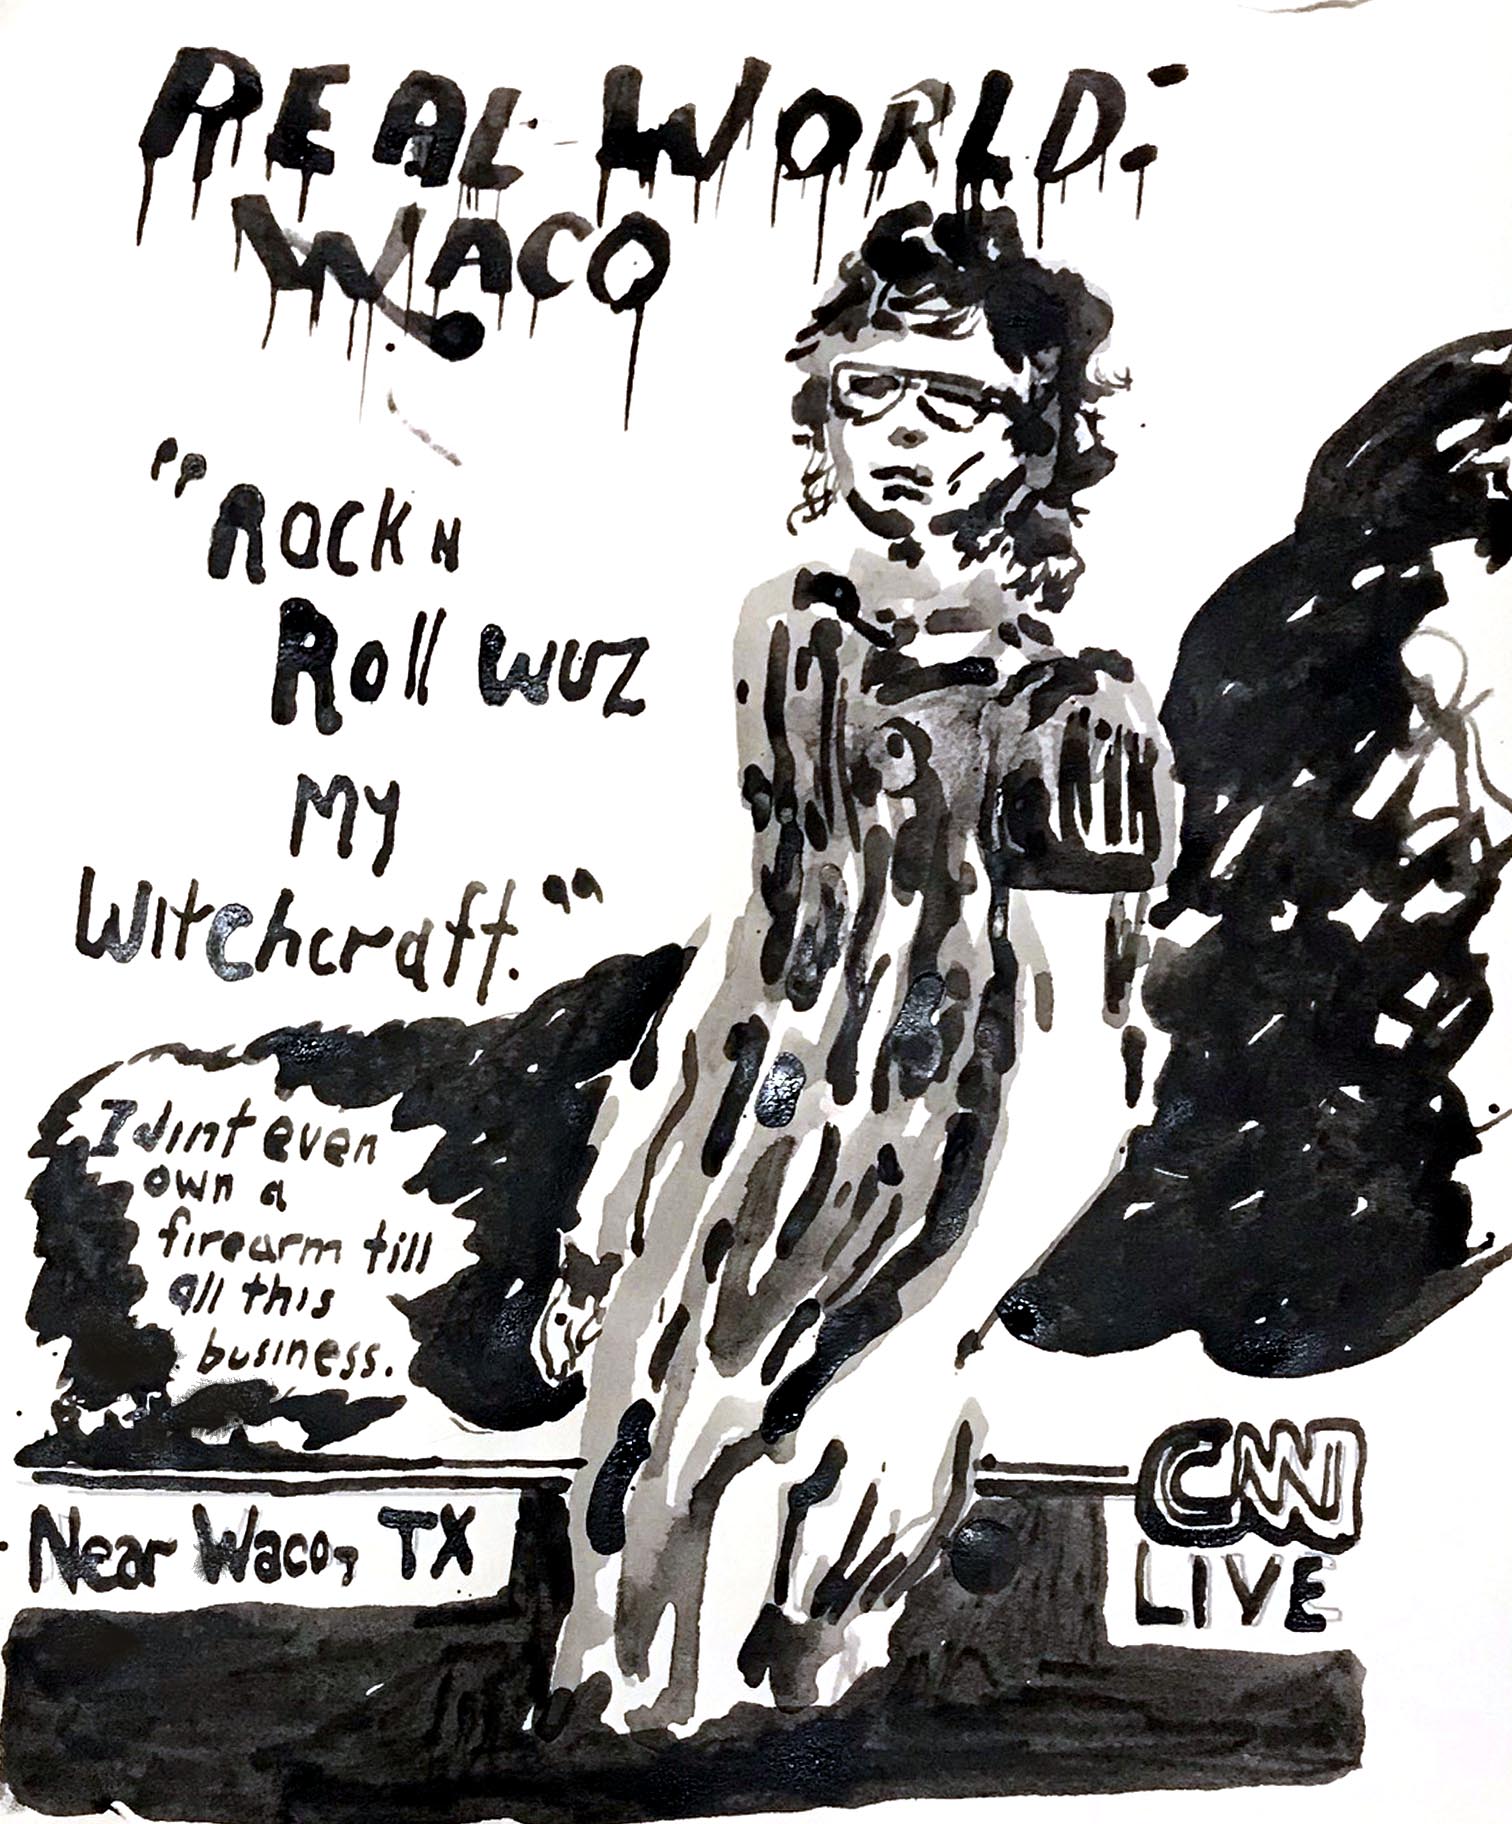 REAL WORLD:
WACO
"ROCK N
Roll WUZ
MY
Witchcraft."
I dint even
own a
firearm till
all this
business.
Near Waco, TX
CNN
LIVE